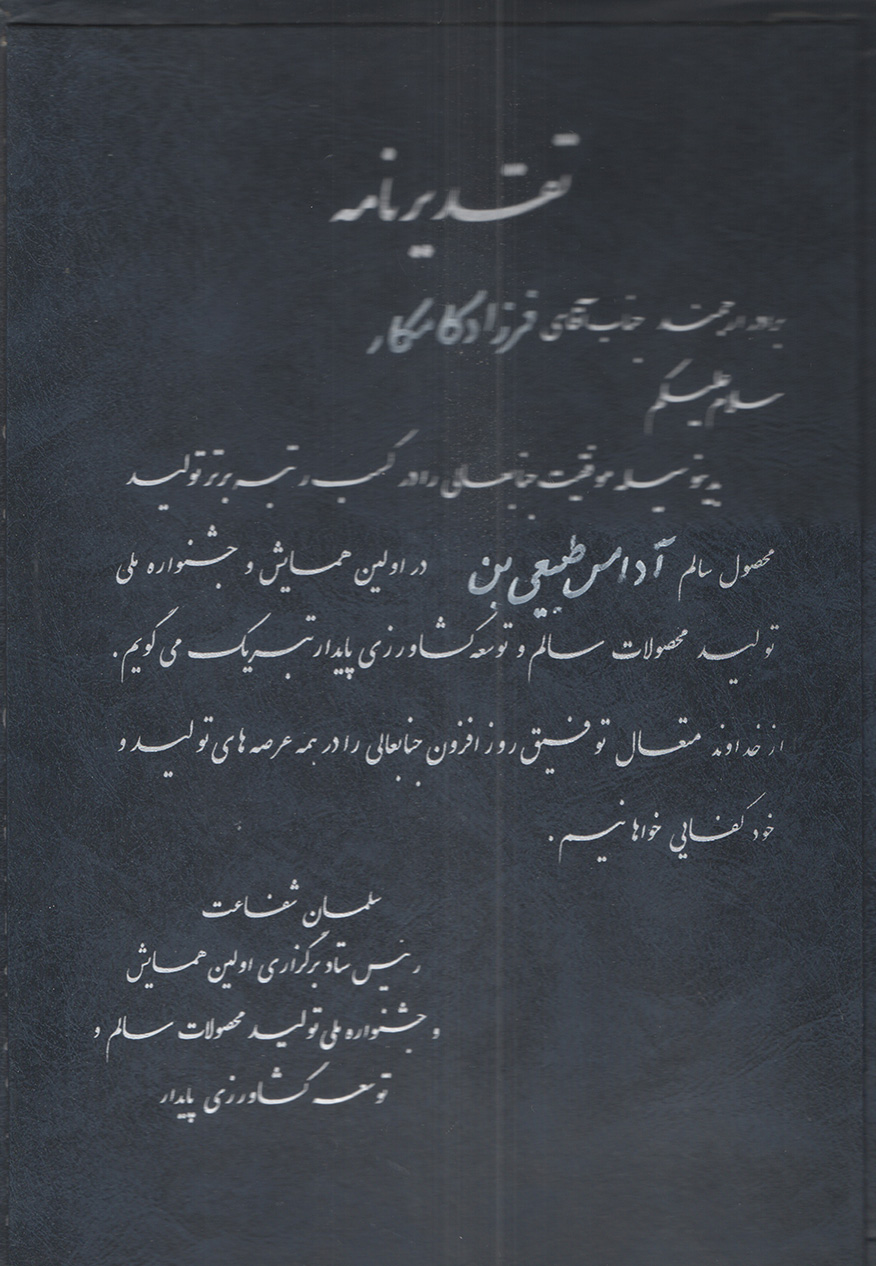 تقدیرنامه
برادر ارجمند جناب آقای فرزاد کامکار
سلام علیکم
بدینوسیله موفقیت جنابعالی را در کسب رتبه برتر تولید
محصول سالم آدامس طبیعی بن در اولین همایش و جشنواره ملی
تولید محصولات سالم و توسعه کشاورزی پایدار تبریک می گویم.
از خداوند متعال توفیق روز افزون جنابعالی را در همه عرصه های تولید و
خودکفایی خواهانیم.
سلمان شفاعت
رئیس ستاد برگزاری اولین همایش
و جشنواره ملی تولید محصولات سالم و
توسعه کشاورزی پایدار